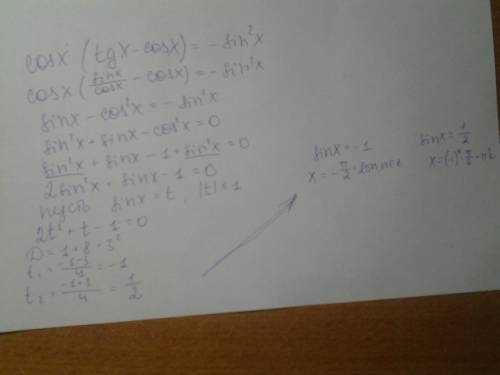 cosx (tgx - cosx) = - sin²x
cosx (sinx/cosx - cosx) = - sin²x
sinx - cos²x = - sin²x
sin²x + sinx - cos²x = 0
sin²x + sinx - 1 + sin²x = 0
2sin²x + sinx - 1 = 0
пусть sinx = t, |t| ≤ 1
2t² + t - 1 = 0
D = 1 + 8 = 3²
t₁ = (-1-3)/4 = -1
t₂ = (-1+3)/4 = 1/2
sinx = -1
x = - π/2 + 2πn, n∈z
sinx = 1/2
x = (-1)ᵏ π/6 + πk